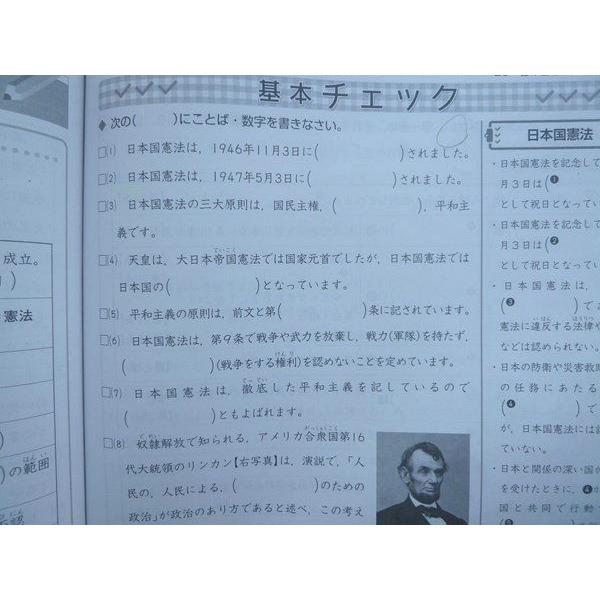 基本チェック
◆次の(　　)にことば・数字を書きなさい。
□(1) 日本国憲法は，1946年11月3日に(　　)されました。
□(2) 日本国憲法は，1947年5月3日に(　　)されました。
□(3) 日本国憲法の三大原則は，国民主権，(　　)，平和主
義です。
□(4) 天皇は，大日本帝国憲法では国家元首でしたが，日本国憲法では
日本国の(　　)となっています。
□(5) 平和主義の原則は，前文と第(　　)条に記されています。
□(6) 日本国憲法は，第9条で戦争や武力を放棄し，戦力(軍隊)を持たず，
(　　)(戦争をする権利)を認めないことを定めています。
□(7) 日本国憲法は，徹底した平和主義を記しているので
(　　)ともよばれます。
□(8) 奴隷解放で知られる，アメリカ合衆国第16
代大統領のリンカン【右写真】は，演説で，「人
民の，人民による，(　　)のための
政治」が政治のあり方であると述べ，この考え
成立。
)
憲法
)の範囲
日本国憲法
・日本国憲法を記念して
月3日は(❶
として祝日となってい
・日本国憲法を記念して
月3日は(❷
として祝日となってい
・日本国憲法は，
(❸　)であ
憲法に違反する法律や
などは認められない。
・日本の防衛や災害救助
の任務にあたる
(❹　)で
が，日本国憲法には
ていない。
・日本と関係の深い国が
を受けたときに，❹が
国と共同で行動